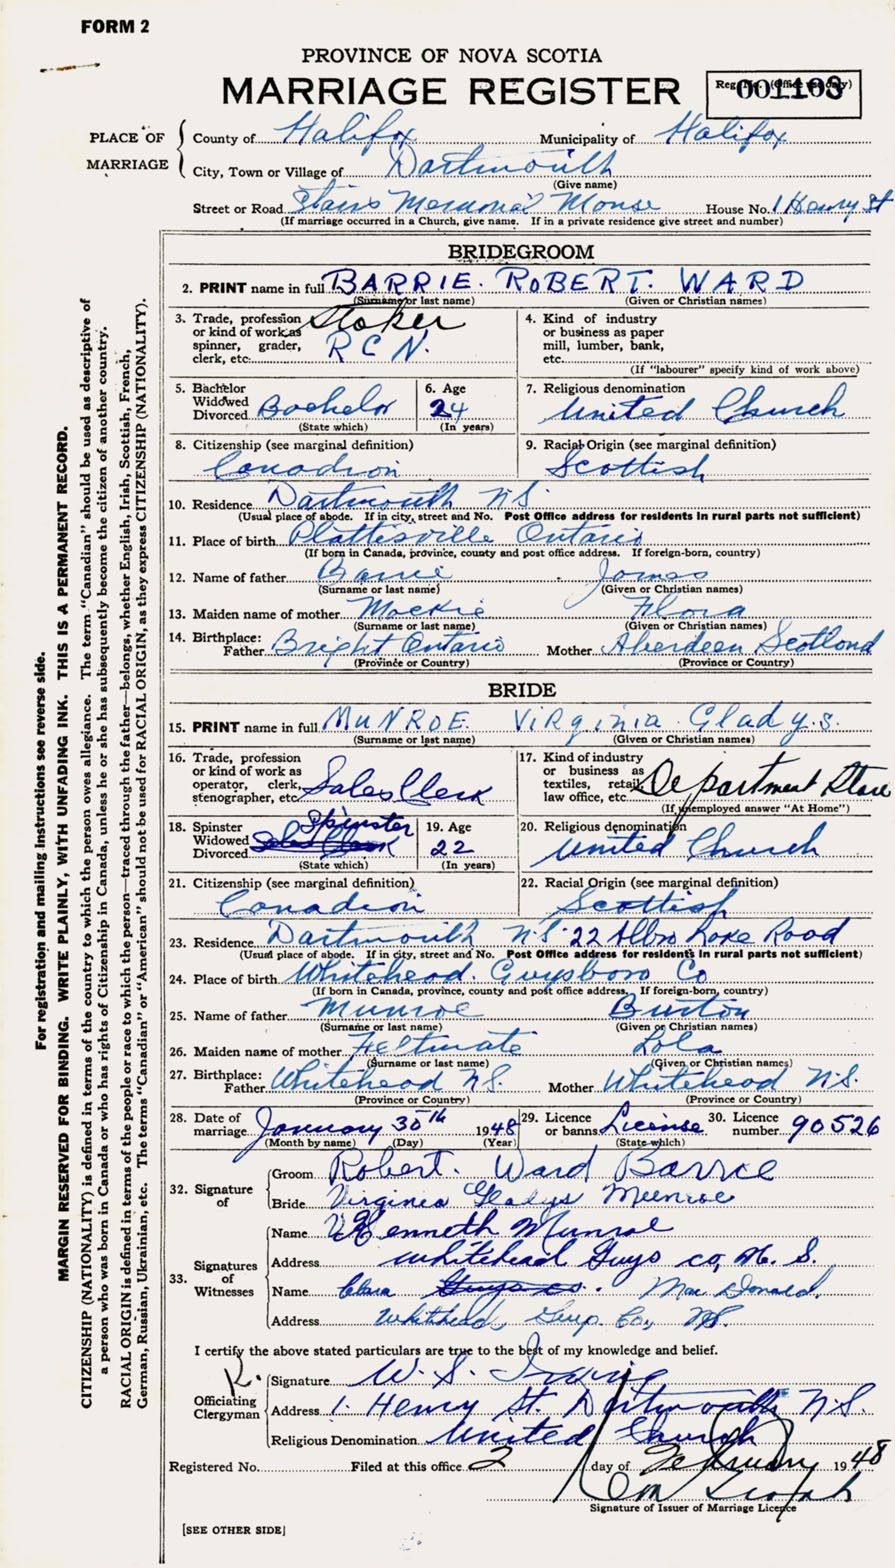 FORM 2
PROVINCE OF NOVA SCOTIA
MARRIAGE REGISTER
Reg. No. (Office use only) 001103
PLACE OF MARRIAGE
County of Halifax Municipality of Halifax
City, Town or Village of Dartmouth
(Give name)
Street or Road Stairs Memorial Manse House No. 1 Henry St
(If marriage occurred in a Church, give name. If in a private residence give street and number)
BRIDEGROOM
2. PRINT name in full BARRIE. ROBERT. WARD
(Surname or last name) (Given or Christian names)
3. Trade, profession or kind of work as spinner, grader, clerk, etc. Stoker R C N.
4. Kind of industry or business as paper mill, lumber, bank, etc.
(If "labourer" specify kind of work above)
5. Bachelor Widowed Divorced Bachelor
(State which)
6. Age 24
(In years)
7. Religious denomination United Church
8. Citizenship (see marginal definition) Canadian
9. Racial Origin (see marginal definition) Scottish
10. Residence Dartmouth N.S.
(Usual place of abode. If in city, street and No. Post Office address for residents in rural parts not sufficient)
11. Place of birth Plattesville Ontario
(If born in Canada, province, county and post office address. If foreign-born, country)
12. Name of father Barrie James
(Surname or last name) (Given or Christian names)
13. Maiden name of mother Mackie Flora
(Surname or last name) (Given or Christian names)
14. Birthplace: Father Bright Ontario Mother Aberdeen Scotland
(Province or Country) (Province or Country)
BRIDE
15. PRINT name in full MUNROE. Virginia Gladys.
(Surname or last name) (Given or Christian names)
16. Trade, profession or kind of work as operator, clerk, stenographer, etc. Sales Clerk
17. Kind of industry or business as textiles, retail, law office, etc. Department Store
(If unemployed answer "At Home")
18. Spinster Widowed Divorced Spinster Sales Clerk
(State which)
19. Age 22
(In years)
20. Religious denomination United Church
21. Citizenship (see marginal definition) Canadian
22. Racial Origin (see marginal definition) Scottish
23. Residence Dartmouth N.S. 22 Albro Lake Road
(Usual place of abode. If in city, street and No. Post Office address for residents in rural parts not sufficient)
24. Place of birth Whitehead Guysboro Co
(If born in Canada, province, county and post office address. If foreign-born, country)
25. Name of father Munroe Burton
(Surname or last name) (Given or Christian names)
26. Maiden name of mother Feltmate Lola
(Surname or last name) (Given or Christian names)
27. Birthplace: Father Whitehead N.S. Mother Whitehead N.S.
(Province or Country) (Province or Country)
28. Date of marriage January 30th 1948
(Month by name) (Day) (Year)
29. Licence or banns License
(State which)
30. Licence number 90526
32. Signature of
Groom Robert. Ward Barrie
Bride Virginia Gladys Munroe
33. Signatures of Witnesses
Name Kenneth Munroe
Address Whitehead Guys co, N. S.
Name Clara Guys co. Mac Donald.
Address Whitehead, Guys. Co., N.S.
I certify the above stated particulars are true to the best of my knowledge and belief.
Officiating Clergyman
Signature W. S. Irving
Address 1. Henry St. Dartmouth N.S.
Religious Denomination United Church
Registered No. Filed at this office 2 day of February 1948
Signature of Issuer of Marriage Licence
[SEE OTHER SIDE]
For registration and mailing instructions see reverse side.
MARGIN RESERVED FOR BINDING. WRITE PLAINLY, WITH UNFADING INK. THIS IS A PERMANENT RECORD.
CITIZENSHIP (NATIONALITY) is defined in terms of the country to which the person owes allegiance. The term "Canadian" should be used as descriptive of
a person who was born in Canada or who has rights of Citizenship in Canada, unless he or she has subsequently become the citizen of another country.
RACIAL ORIGIN is defined in terms of the people or race to which the person—traced through the father—belongs, whether English, Irish, Scottish, French,
German, Russian, Ukrainian, etc. The terms "Canadian" or "American" should not be used for RACIAL ORIGIN, as they express CITIZENSHIP (NATIONALITY).